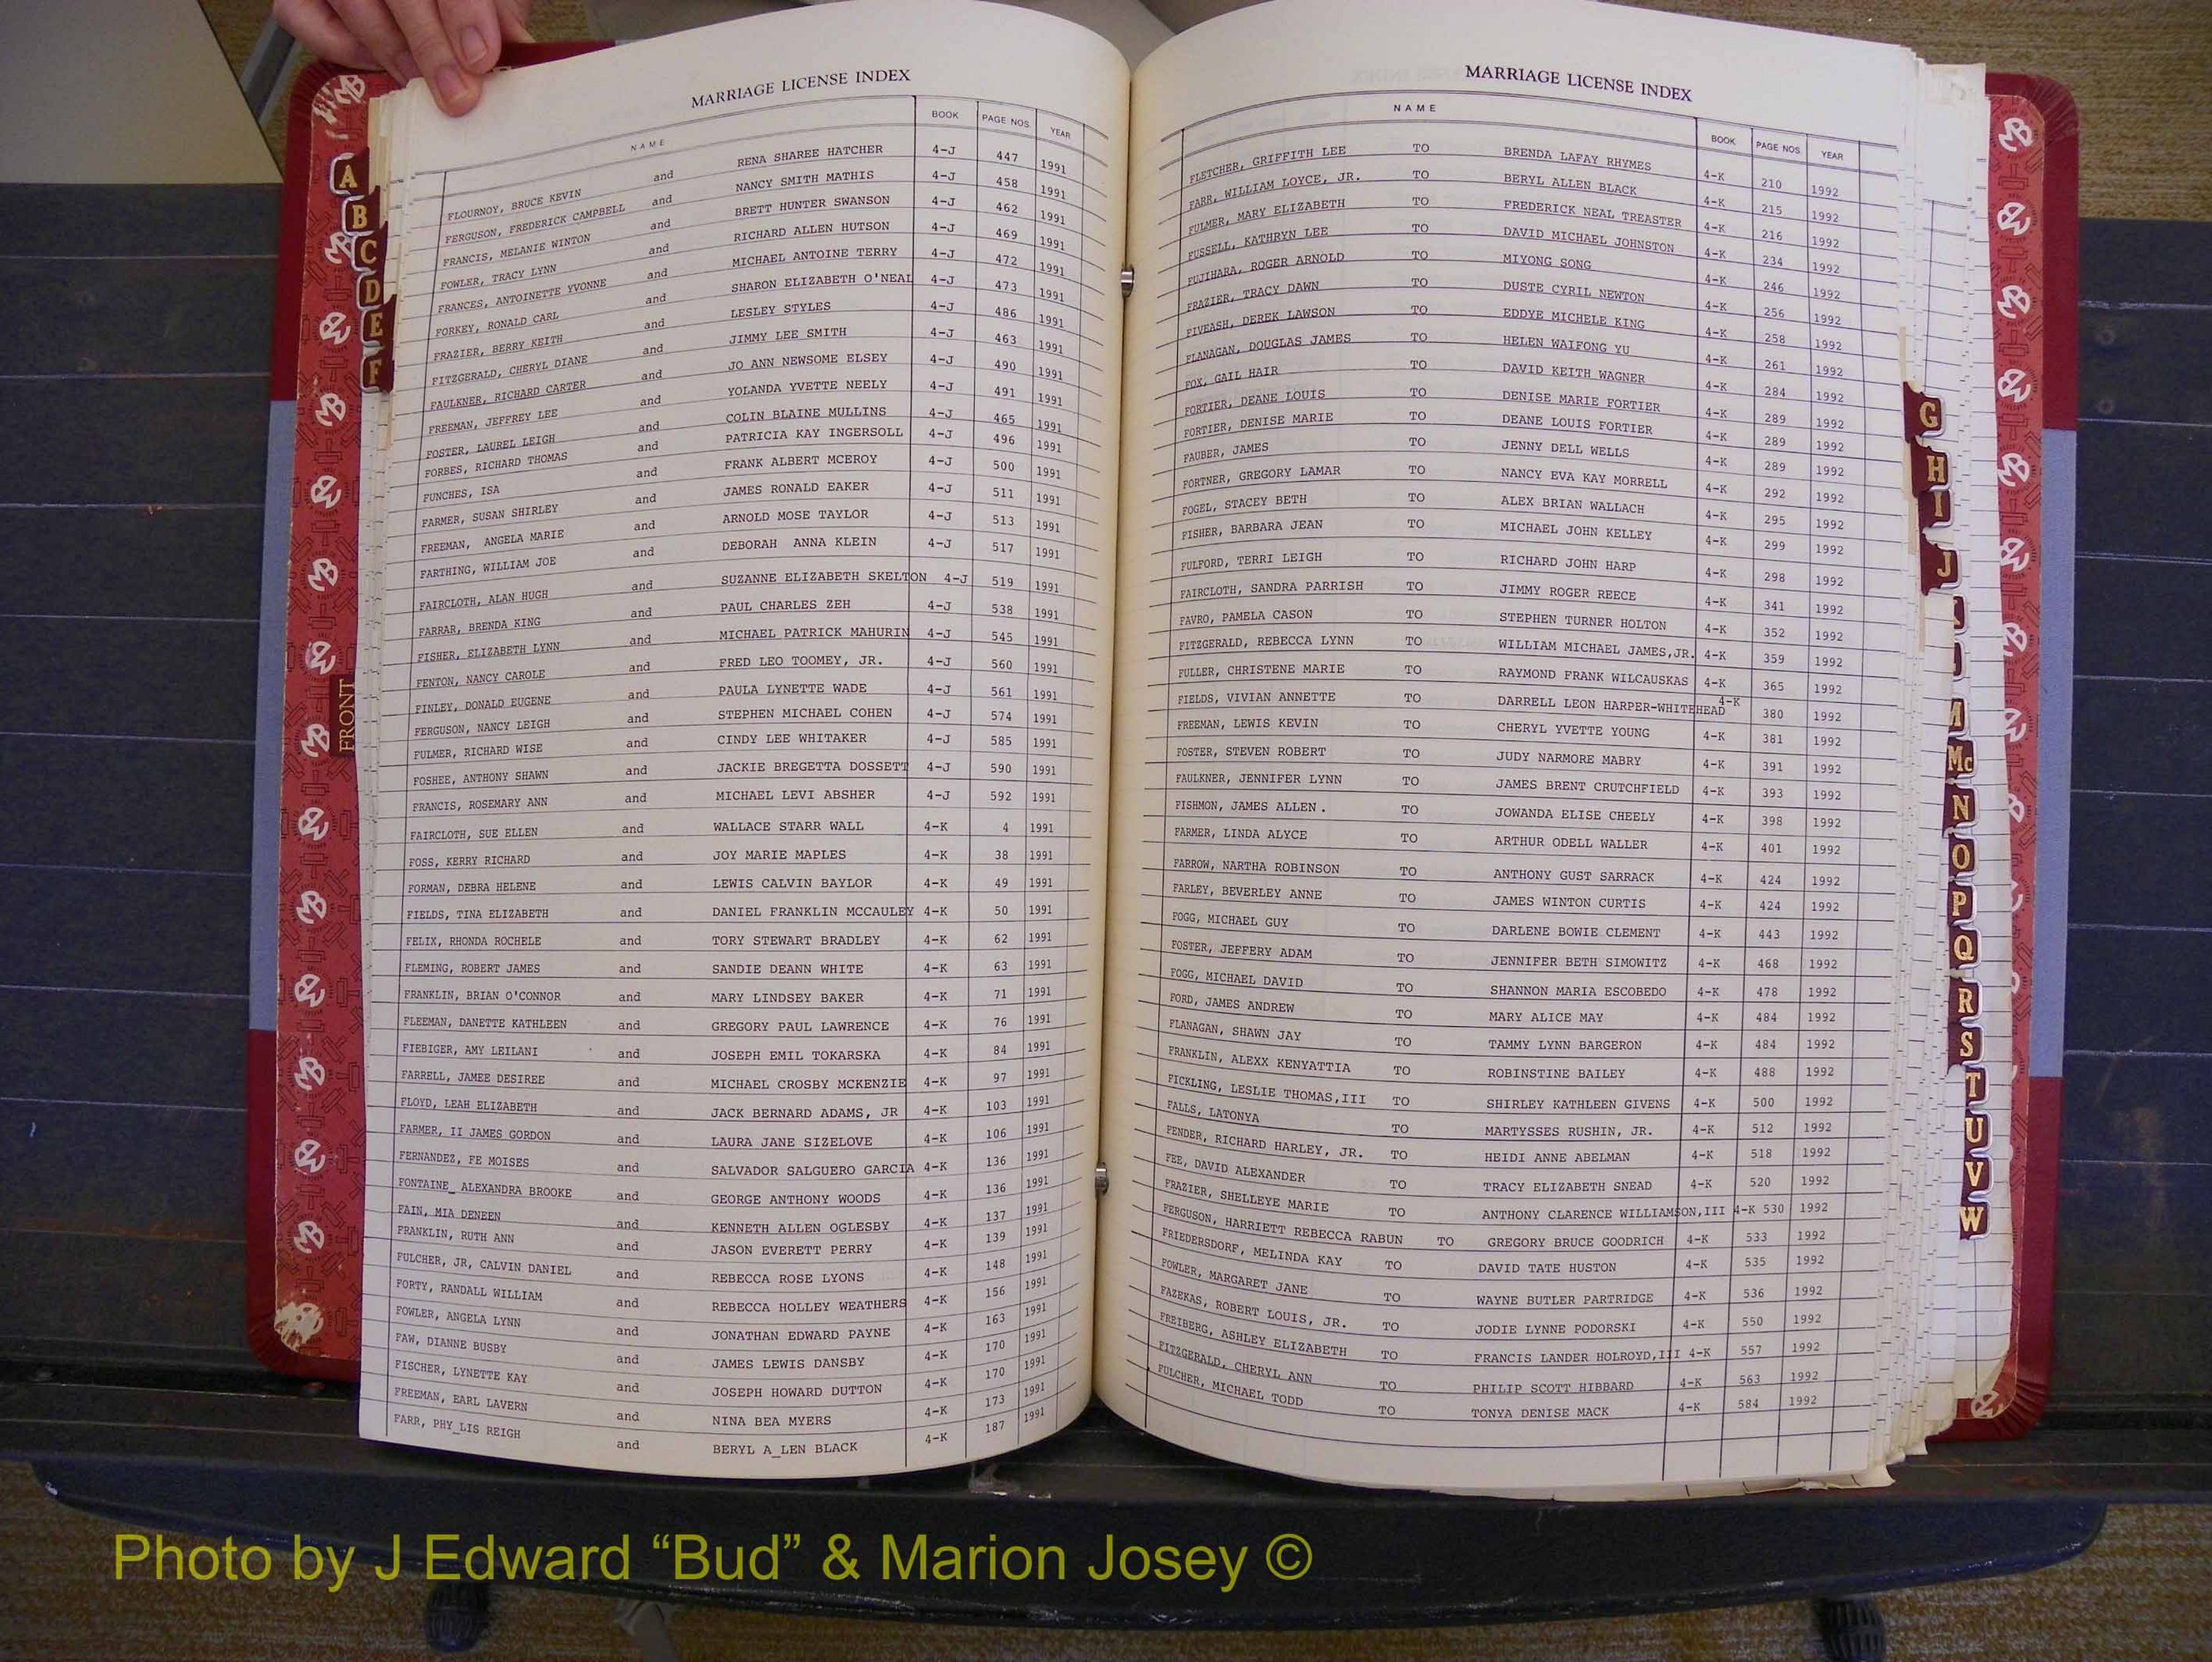 MARRIAGE LICENSE INDEX
NAME BOOK PAGE NOS. YEAR
FLOURNOY, BRUCE KEVIN and RENA SHAREE HATCHER 4-J 447 1991
FERGUSON, FREDERICK CAMPBELL and NANCY SMITH MATHIS 4-J 458 1991
FRANCIS, MELANIE WINTON and BRETT HUNTER SWANSON 4-J 462 1991
FOWLER, TRACY LYNN and RICHARD ALLEN HUTSON 4-J 469 1991
FRANCES, ANTOINETTE YVONNE and MICHAEL ANTOINE TERRY 4-J 472 1991
FORKEY, RONALD CARL and SHARON ELIZABETH O'NEAL 4-J 473 1991
FRAZIER, BERRY KEITH and LESLEY STYLES 4-J 486 1991
FITZGERALD, CHERYL DIANE and JIMMY LEE SMITH 4-J 463 1991
FAULKNER, RICHARD CARTER and JO ANN NEWSOME ELSEY 4-J 490 1991
FREEMAN, JEFFREY LEE and YOLANDA YVETTE NEELY 4-J 491 1991
FOSTER, LAUREL LEIGH and COLIN BLAINE MULLINS 4-J 465 1991
FORBES, RICHARD THOMAS and PATRICIA KAY INGERSOLL 4-J 496 1991
FUNCHES, ISA and FRANK ALBERT MCEROY 4-J 500 1991
FARMER, SUSAN SHIRLEY and JAMES RONALD EAKER 4-J 511 1991
FREEMAN, ANGELA MARIE and ARNOLD MOSE TAYLOR 4-J 513 1991
FARTHING, WILLIAM JOE and DEBORAH ANNA KLEIN 4-J 517 1991
FAIRCLOTH, ALAN HUGH and SUZANNE ELIZABETH SKELTON 4-J 519 1991
FARRAR, BRENDA KING and PAUL CHARLES ZEH 4-J 538 1991
FISHER, ELIZABETH LYNN and MICHAEL PATRICK MAHURIN 4-J 545 1991
FENTON, NANCY CAROLE and FRED LEO TOOMEY, JR. 4-J 560 1991
FINLEY, DONALD EUGENE and PAULA LYNETTE WADE 4-J 561 1991
FERGUSON, NANCY LEIGH and STEPHEN MICHAEL COHEN 4-J 574 1991
FULMER, RICHARD WISE and CINDY LEE WHITAKER 4-J 585 1991
FOSHEE, ANTHONY SHAWN and JACKIE BREGETTA DOSSETT 4-J 590 1991
FRANCIS, ROSEMARY ANN and MICHAEL LEVI ABSHER 4-J 592 1991
FAIRCLOTH, SUE ELLEN and WALLACE STARR WALL 4-K 4 1991
FOSS, KERRY RICHARD and JOY MARIE MAPLES 4-K 38 1991
FORMAN, DEBRA HELENE and LEWIS CALVIN BAYLOR 4-K 49 1991
FIELDS, TINA ELIZABETH and DANIEL FRANKLIN MCCAULEY 4-K 50 1991
FELIX, RHONDA ROCHELE and TORY STEWART BRADLEY 4-K 62 1991
FLEMING, ROBERT JAMES and SANDIE DEANN WHITE 4-K 63 1991
FRANKLIN, BRIAN O'CONNOR and MARY LINDSEY BAKER 4-K 71 1991
FLEEMAN, DANETTE KATHLEEN and GREGORY PAUL LAWRENCE 4-K 76 1991
FIEBIGER, AMY LEILANI and JOSEPH EMIL TOKARSKA 4-K 84 1991
FARRELL, JAMEE DESIREE and MICHAEL CROSBY MCKENZIE 4-K 97 1991
FLOYD, LEAH ELIZABETH and JACK BERNARD ADAMS, JR 4-K 103 1991
FARMER, II JAMES GORDON and LAURA JANE SIZELOVE 4-K 106 1991
FERNANDEZ, FE MOISES and SALVADOR SALGUERO GARCIA 4-K 136 1991
FONTAINE_ ALEXANDRA BROOKE and GEORGE ANTHONY WOODS 4-K 136 1991
FAIN, MIA DENEEN and KENNETH ALLEN OGLESBY 4-K 137 1991
FRANKLIN, RUTH ANN and JASON EVERETT PERRY 4-K 139 1991
FULCHER, JR, CALVIN DANIEL and REBECCA ROSE LYONS 4-K 148 1991
FORTY, RANDALL WILLIAM and REBECCA HOLLEY WEATHERS 4-K 156 1991
FOWLER, ANGELA LYNN and JONATHAN EDWARD PAYNE 4-K 163 1991
FAW, DIANNE BUSBY and JAMES LEWIS DANSBY 4-K 170 1991
FISCHER, LYNETTE KAY and JOSEPH HOWARD DUTTON 4-K 170 1991
FREEMAN, EARL LAVERN and NINA BEA MYERS 4-K 173 1991
FARR, PHY_LIS REIGH and BERYL A_LEN BLACK 4-K 187 1991
MARRIAGE LICENSE INDEX
NAME BOOK PAGE NOS. YEAR
FLETCHER, GRIFFITH LEE TO BRENDA LAFAY RHYMES 4-K 210 1992
FARR, WILLIAM LOYCE, JR. TO BERYL ALLEN BLACK 4-K 215 1992
FULMER, MARY ELIZABETH TO FREDERICK NEAL TREASTER 4-K 216 1992
FUSSELL, KATHRYN LEE TO DAVID MICHAEL JOHNSTON 4-K 234 1992
FUJIHARA, ROGER ARNOLD TO MIYONG SONG 4-K 246 1992
FRAZIER, TRACY DAWN TO DUSTE CYRIL NEWTON 4-K 256 1992
FIVEASH, DEREK LAWSON TO EDDYE MICHELE KING 4-K 258 1992
FLANAGAN, DOUGLAS JAMES TO HELEN WAIFONG YU 4-K 261 1992
FOX, GAIL HAIR TO DAVID KEITH WAGNER 4-K 284 1992
FORTIER, DEANE LOUIS TO DENISE MARIE FORTIER 4-K 289 1992
FORTIER, DENISE MARIE TO DEANE LOUIS FORTIER 4-K 289 1992
FAUBER, JAMES TO JENNY DELL WELLS 4-K 289 1992
FORTNER, GREGORY LAMAR TO NANCY EVA KAY MORRELL 4-K 292 1992
FOGEL, STACEY BETH TO ALEX BRIAN WALLACH 4-K 295 1992
FISHER, BARBARA JEAN TO MICHAEL JOHN KELLEY 4-K 299 1992
FULFORD, TERRI LEIGH TO RICHARD JOHN HARP 4-K 298 1992
FAIRCLOTH, SANDRA PARRISH TO JIMMY ROGER REECE 4-K 341 1992
FAVRO, PAMELA CASON TO STEPHEN TURNER HOLTON 4-K 352 1992
FITZGERALD, REBECCA LYNN TO WILLIAM MICHAEL JAMES,JR. 4-K 359 1992
FULLER, CHRISTENE MARIE TO RAYMOND FRANK WILCAUSKAS 4-K 365 1992
FIELDS, VIVIAN ANNETTE TO DARRELL LEON HARPER-WHITEHEAD 4-K 380 1992
FREEMAN, LEWIS KEVIN TO CHERYL YVETTE YOUNG 4-K 381 1992
FOSTER, STEVEN ROBERT TO JUDY NARMORE MABRY 4-K 391 1992
FAULKNER, JENNIFER LYNN TO JAMES BRENT CRUTCHFIELD 4-K 393 1992
FISHMON, JAMES ALLEN. TO JOWANDA ELISE CHEELY 4-K 398 1992
FARMER, LINDA ALYCE TO ARTHUR ODELL WALLER 4-K 401 1992
FARROW, NARTHA ROBINSON TO ANTHONY GUST SARRACK 4-K 424 1992
FARLEY, BEVERLEY ANNE TO JAMES WINTON CURTIS 4-K 424 1992
FOGG, MICHAEL GUY TO DARLENE BOWIE CLEMENT 4-K 443 1992
FOSTER, JEFFERY ADAM TO JENNIFER BETH SIMOWITZ 4-K 468 1992
FOGG, MICHAEL DAVID TO SHANNON MARIA ESCOBEDO 4-K 478 1992
FORD, JAMES ANDREW TO MARY ALICE MAY 4-K 484 1992
FLANAGAN, SHAWN JAY TO TAMMY LYNN BARGERON 4-K 484 1992
FRANKLIN, ALEXX KENYATTIA TO ROBINSTINE BAILEY 4-K 488 1992
FICKLING, LESLIE THOMAS,III TO SHIRLEY KATHLEEN GIVENS 4-K 500 1992
FALLS, LATONYA TO MARTYSSES RUSHIN, JR. 4-K 512 1992
FENDER, RICHARD HARLEY, JR. TO HEIDI ANNE ABELMAN 4-K 518 1992
FEE, DAVID ALEXANDER TO TRACY ELIZABETH SNEAD 4-K 520 1992
FRAZIER, SHELLEYE MARIE TO ANTHONY CLARENCE WILLIAMSON,III 4-K 530 1992
FERGUSON, HARRIETT REBECCA RABUN TO GREGORY BRUCE GOODRICH 4-K 533 1992
FRIEDERSDORF, MELINDA KAY TO DAVID TATE HUSTON 4-K 535 1992
FOWLER, MARGARET JANE TO WAYNE BUTLER PARTRIDGE 4-K 536 1992
FAZEKAS, ROBERT LOUIS, JR. TO JODIE LYNNE PODORSKI 4-K 550 1992
FREIBERG, ASHLEY ELIZABETH TO FRANCIS LANDER HOLROYD,III 4-K 557 1992
FITZGERALD, CHERYL ANN TO PHILIP SCOTT HIBBARD 4-K 563 1992
FULCHER, MICHAEL TODD TO TONYA DENISE MACK 4-K 584 1992
A
B
C
D
E
F
FRONT
G
H
I
J
M
Mc
N
O
P
Q
R
S
T
U
V
W
Photo by J Edward “Bud” & Marion Josey ©